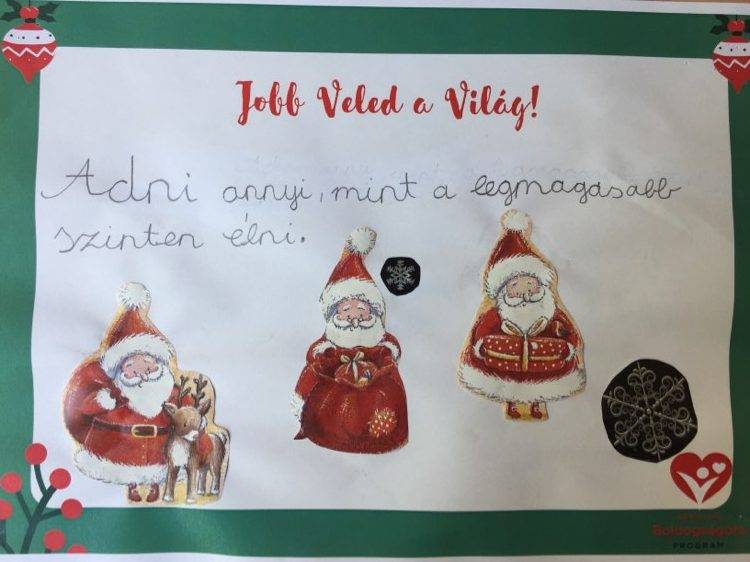 Jobb Veled a Világ!
Adni annyi, mint a legmagasabb
szinten élni.
Boldogságóra
PROGRAM